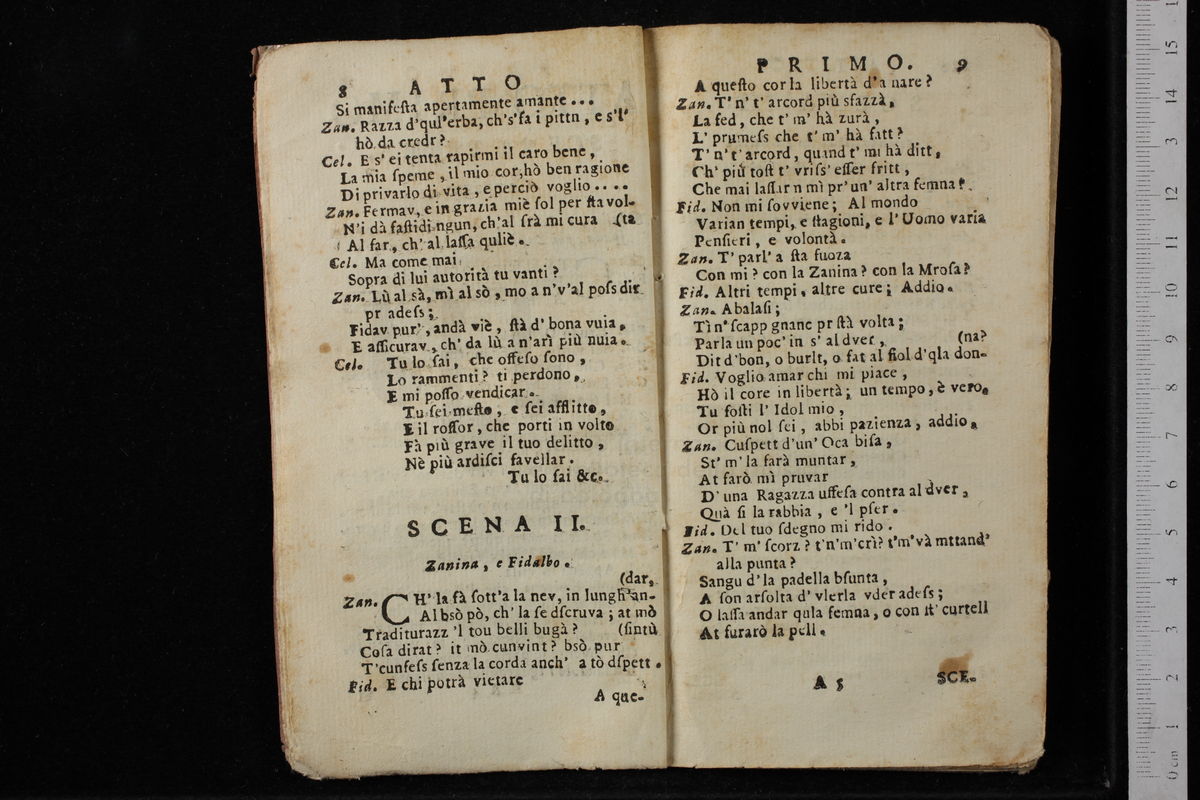 8 ATTO
Si manifeſta apertamente amante...
Zan. Razza d'qul'erba, ch's'fa i pittn, e s'l'
hò da credr?
Cel. E s' ei tenta rapirmi il caro bene,
La mia ſpeme, il mio cor, hò ben ragione
Di privarlo di vita, e perciò voglio....
Zan. Fermav, e in grazia miè ſol per ſta vol-
N'i dà faſtidi ngun, ch'al ſrà mi cura (ta
Al far, ch' al laſſa quliè.
Cel. Ma come mai
Sopra di lui autorità tu vanti?
Zan. Lù al sà, mì al sò, mo a n'v'al poſs dir
pr adeſs;
Fidav pur', andà viè, ſtà d' bona vuia,
E aſſicurav, ch' da lù a n'arì più nuia.
Cel. Tu lo ſai, che offeſo ſono,
Lo rammenti? ti perdono,
E mi poſſo vendicar.
Tu ſei meſto, e ſei afflitto,
E il roſſor, che porti in volto
Fà più grave il tuo delitto,
Nè più ardiſci favellar.
Tu lo ſai &c.
SCENA II.
Zanina, e Fidalbo.
(dar,
Zan. CH' la fà ſott'a la nev, in lungh an-
Al bsò pò, ch' la ſe dſcruva; at mò
Traditurazz 'l tou belli bugà? (ſintù
Coſa dirat? it mò cunvint? bsò pur
T'cunfeſs ſenza la corda anch' a tò dſpett.
Fid. E chi potrà vietare
A que-
PRIMO. 9
A queſto cor la libertà d'a nare?
Zan. T' n' t' arcord più sfazzà,
La fed, che t' m' hà zurà,
L' prumeſs che t' m' hà fatt?
T' n' t' arcord, quand t' mi hà ditt,
Ch' più toſt t' vriſs' eſſer fritt,
Che mai laſſar n mì pr' un' altra femna?
Fid. Non mi ſovviene; Al mondo
Varian tempi, e ſtagioni, e l' Uomo varia
Penſieri, e volontà.
Zan. T' parl' a ſta fuoza
Con mi? con la Zanina? con la Mroſa?
Fid. Altri tempi, altre cure; Addio.
Zan. Abalaſi;
Tì n' ſcapp gnanc pr ſtà volta;
Parla un poc' in s' al dver, (na?
Dit d'bon, o burlt, o fat al fiol d'qla don-
Fid. Voglio amar chi mi piace,
Hò il core in libertà; un tempo, è vero,
Tu foſti l' Idol mio,
Or più nol ſei, abbi pazienza, addio.
Zan. Cuſpett d'un' Oca biſa,
St' m' la farà muntar,
At farò mì pruvar
D' una Ragazza uffeſa contra al dver,
Quà ſi la rabbia, e 'l pſer.
Fid. Del tuo ſdegno mi rido.
Zan. T' m' ſcorz? t'n'm'crì? t'm'và mttand'
alla punta?
Sangu d'la padella bſunta,
A ſon arſolta d' vlerla vder adeſs;
O laſſa andar qula femna, o con ſt' curtell
At furarò la pell.
A 5
SCE-